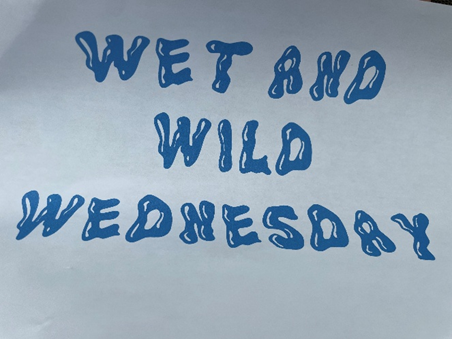 WET AND
WILD
WEDNESDAY